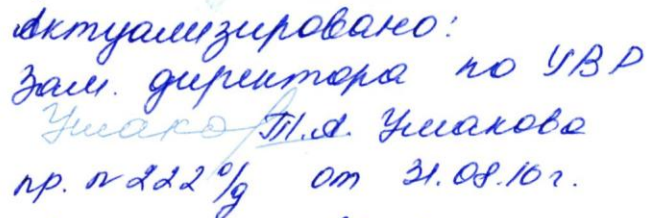 Актуализировано:
Зам. директора по УВР
Ушако Т.А. Ушакова
пр. №222 о/д от 31.08.16г.